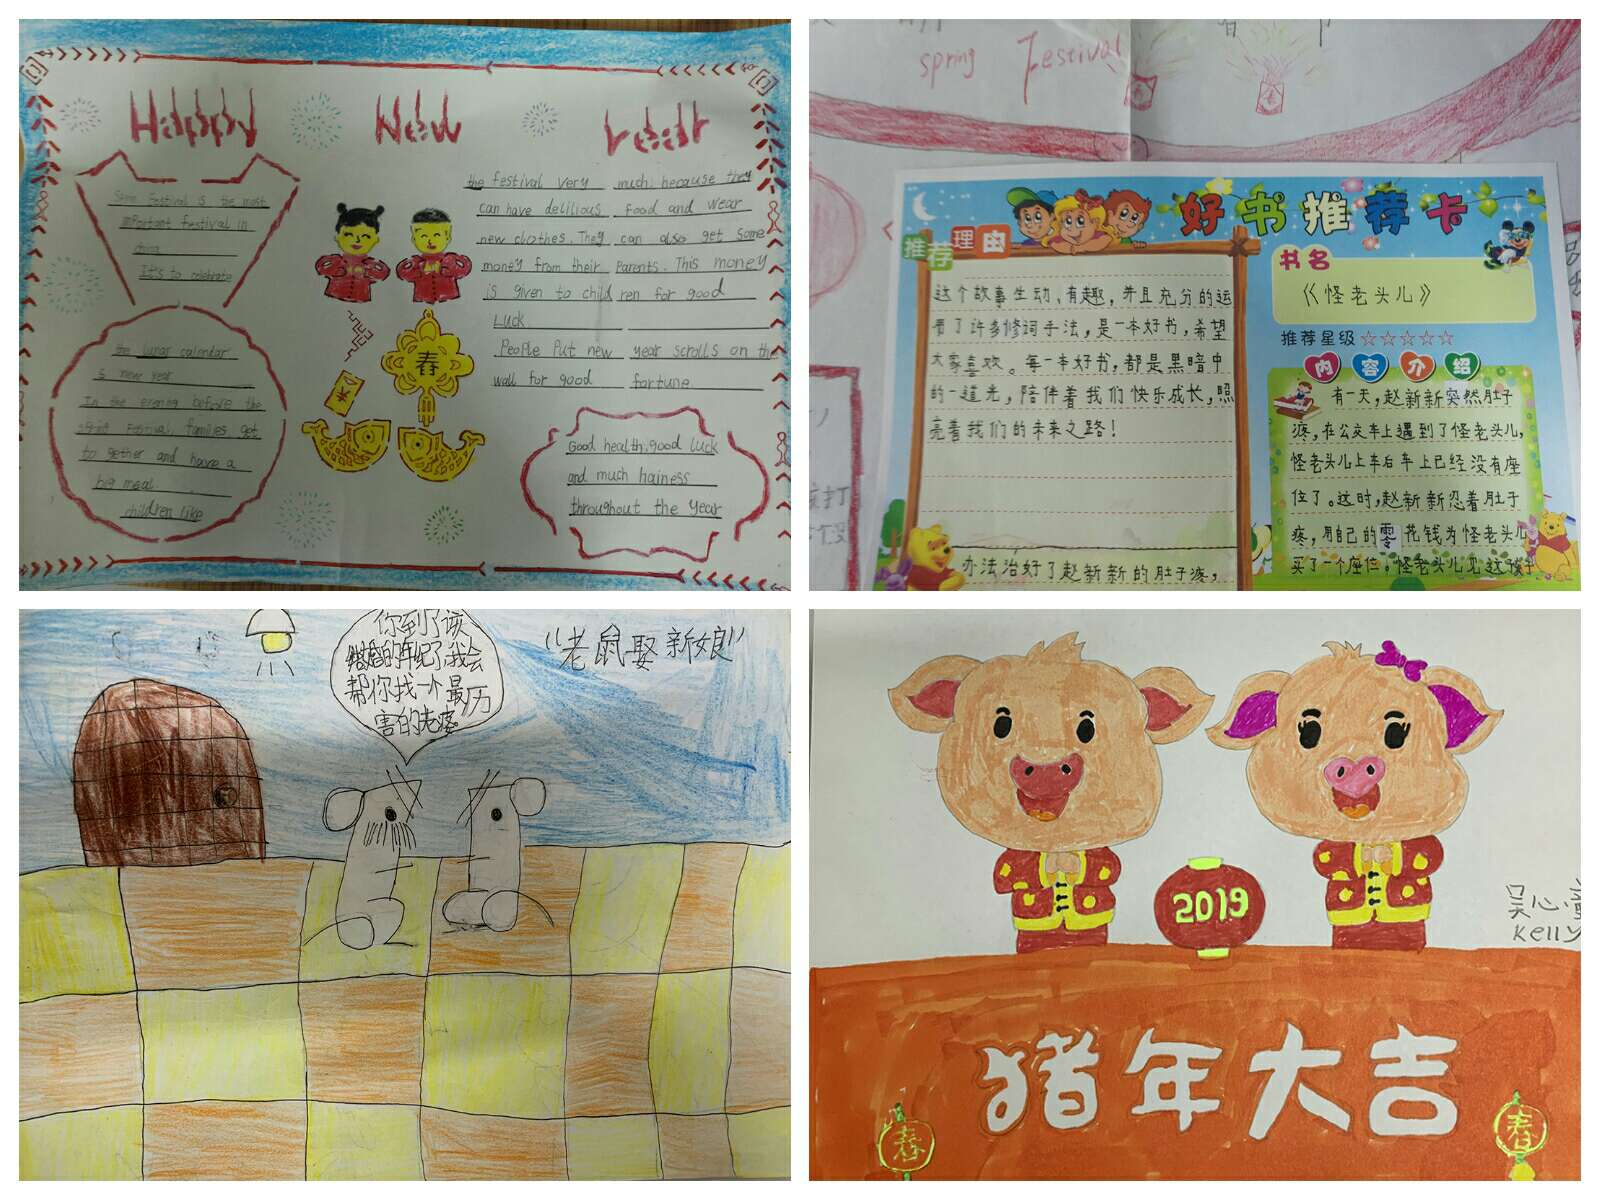 Happy New Year
Spring Festival is the most
important festival in
china
It's to celebrate
the lunar calendar
's new year
In the evening before the
spring Festival, families get
to gether and have a
big meal
children like
the festival very much, because they
can have delilious food and wear
new clothes. They can also get some
money from their parents. This money
is given to child ren for good
Luck
People Put new year scrolls on the
wall for good fortune
春
Good health, good luck
and much hainess
throughout the year
spring Festival
春
好书推荐卡
推荐理由
这个故事生动、有趣,并且充分的运
用了许多修词手法,是一本好书,希望
大家喜欢。每一本好书,都是黑暗中
的一道光,陪伴着我们快乐成长,照
亮着我们的未来之路!
办法治好了赵新新的肚子疼,
书名
《怪老头儿》
推荐星级☆☆☆☆☆
内容介绍
有一天,赵新新突然肚子
疼,在公交车上遇到了怪老头儿,
怪老头儿上车后车上已经没有座
位了。这时,赵新新忍着肚子
疼,用自己的零花钱为怪老头儿
买了一个座位。怪老头儿见这孩子
你到了该
结婚的年纪了,我会
帮你找一个最厉
害的老婆
“老鼠娶新娘”
2019
吴心童
Kelly
猪年大吉
春
春